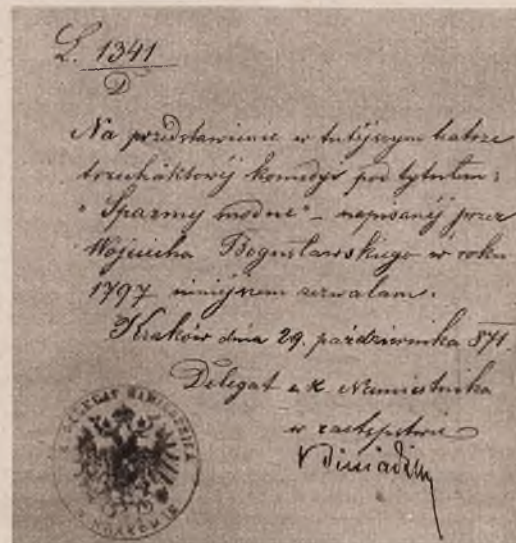 L. 1341
D
Na przedstawienie w tutejszym teatrze
trzechaktowéj komedyi pod tytułem:
"Spazmy modne" – napisanéj przez
Wojciecha Bogusławskiego w roku
1797 niniejszem zezwalam.
Kraków dnia 29. października 871.
Delegat c.k. Namiestnika
w zastępstwie
DELEGAT NAMIESTNIKA
W KRAKOWIE